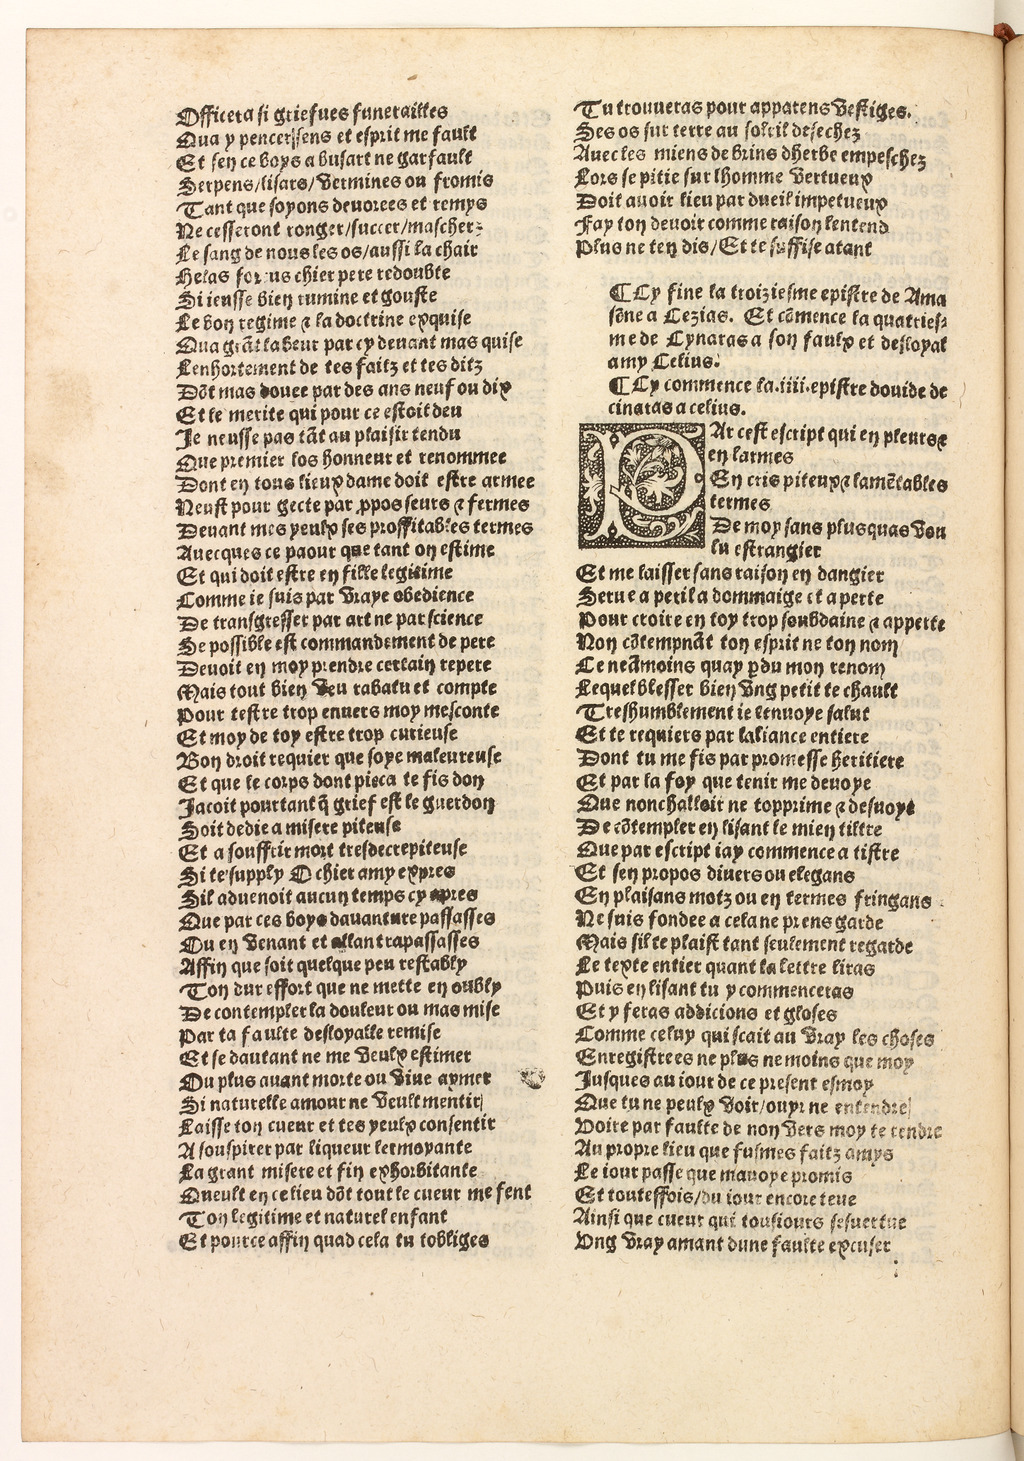 Officera si griefues funerailles
Qua y pencer sens et esprit me fault
Et sen ce boys a busart ne garfault
Serpens/lisars/vermines ou fromis
Tant que soyons deuorees et remys
Ne cesseront ronger/succer/mascher
Le sang de nous les os/aussi la chair
Helas chier pere redoubte
Si ieusse bien rumine et gouste
Le bon regime ⁊ la doctrine exquise
Qua grāt labeur par cy deuant mas quise
Lenhortement de tes faitz et tes ditz
Dōt mas douee par des ans neuf ou dix
Et le merite qui pour ce estoit deu
Je neusse pas tāt au plaisir tendu
Que premier los honneur et renommee
Dont en tous lieux dame doit estre armee
Neust pour gecte par ꝓpos seurs ⁊ fermes
Deuant mes yeulx ses proffitables termes
Auecques ce paour que tant on estime
Et qui doit estre en fille legitime
Comme ie suis par vraye obedience
De transgresser par art ne par science
Se possible est commandement de pere
Deuoit en moy prendre certain repere
Mais tout bien veu rabatu et compte
Pour testre trop enuers moy mesconte
Et moy de toy estre trop curieuse
Bon droit requier que soye maleureuse
Et que le corps dont pieca te fis don
Jacoit pourtant q̄ grief est le guerdon
Soit dedie a misere piteuse
Et a souffrir mort tresdecrepiteuse
Si te supply O chier amy expres
Sil aduenoit aucun temps cy apres
Que par ces boys dauanture passasses
Ou en venant et allant rapassasses
Affin que soit quelque peu restably
Ton dur effort que ne mette en oubly
De contempler la douleur ou mas mise
Par ta faulte desloyalle remise
Et se dautant ne me veulx estimer
Ou plus auant morte ou viue aymer
Si naturelle amour ne veult mentir
Laisse ton cueur et tes yeulx consentir
A souspirer par liqueur lermoyante
La grant misere et fin exhorbitante
Queult en ce lieu dōt tout le cueur me fent
Ton legitime et naturel enfant
Et pource affin quād cela tu tobliges
Tu trouueras pour apparens vestiges.
Ses os sur terre au soleil desechez
Auec les miens de brins dherbe empeschez
Lors se pitie sur lhomme vertueux
Doit auoir lieu par dueil impetueux
Fay ton deuoir comme raison lentend
Plus ne ten dis/Et te suffise atant
¶ Cy fine la troiziesme epistre de Ama
sōne a Cezias. Et cōmence la quatries⸗
me de Cynaras a son faulx et desloyal
amy Celius.
¶ Cy commence la.iiii.epistre douide de
cinaras a celius.
PAr cest escript qui en pleurs ⁊
en larmes
En cris piteux ⁊ lamētables
termes
De moy sans plus quas vou
lu estrangier
Et me laisser sans raison en dangier
Serue a peril a dommaige et a perte
Pour croire en toy trop soubdaine ⁊ apperte
Non cōtempnāt ton esprit ne ton nom
Ce neāmoins quay ꝑdu mon renom
Lequel blesser bien vng petit te chault
Treshumblement ie tenuoye salut
Et te requiers par laliance entiere
Dont tu me fis par promesse heritiere
Et par la foy que tenir me deuoye
Que nonchalloir ne topprime ⁊ desuoye
De cōtempler en lisant le mien tiltre
Que par escript iay commence a tistre
Et sen propos diuers ou elegans
En plaisans motz ou en termes fringans
Ne suis fondee a cela ne prens garde
Mais sil te plaist tant seulement regarde
Le texte entier quant la lettre liras
Puis en lisant tu y commenceras
Et y feras addicions et gloses
Comme celuy qui scait au vray les choses
Enregistrees ne plus ne moins que moy
Jusques au iour de ce present esmoy
Que tu ne peulx voir/ouyr ne entendre
Voire par faulte de non vers moy te rendre
Au propre lieu que fusmes faitz amys
Le iour passe que mauoye promis
Et toutesfois/du iour encore teue
Ainsi que cueur qui tousiours sesuertue
Vng vray amant dune faulte excuser